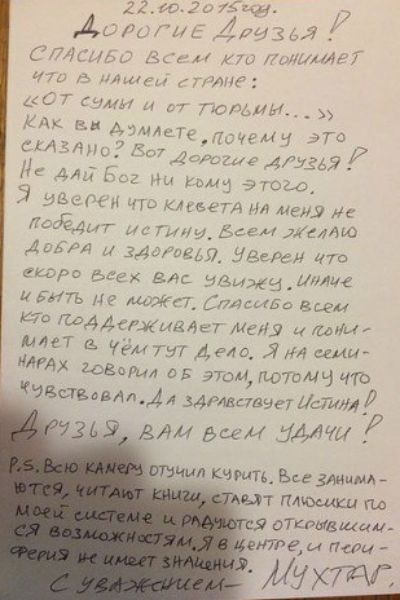 22.10.2015год.
Дорогие Друзья!
Спасибо всем кто понимает
что в нашей стране:
«От сумы и от тюрьмы...»
Как вы думаете, почему это
сказано? Вот дорогие друзья!
Не дай Бог ни кому этого.
Я уверен что клевета на меня не
победит истину. Всем желаю
добра и здоровья. Уверен что
скоро всех вас увижу. Иначе
и быть не может. Спасибо всем
кто поддерживает меня и пони-
мает в чём тут дело. Я на семи-
нарах говорил об этом, потому что
чувствовал. Да здравствует Истина!
Друзья, вам всем удачи!
P.S. Всю камеру отучил курить. Все занима-
ются, читают книги, ставят плюсики по
моей системе и радуются открывшим-
ся возможностям. Я в центре, и пери-
ферия не имеет значения.
С уважением— Мухтар.